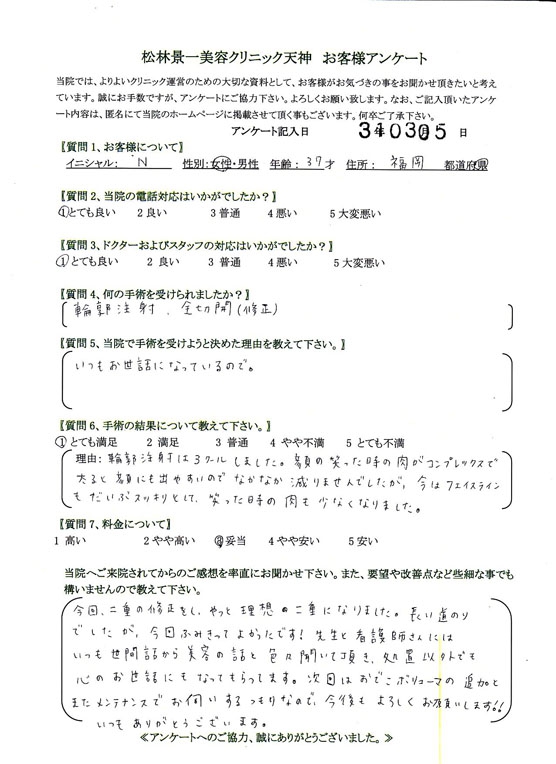 松林景一美容クリニック天神　お客様アンケート
当院では、よりよいクリニック運営のための大切な資料として、お客様がお気づきの事をお聞かせ頂きたいと考え
ています。誠にお手数ですが、アンケートにご協力下さい。よろしくお願い致します。なお、ご記入頂いたアンケ
ート内容は、匿名にて当院のホームページに掲載させて頂く事もございます。何卒ご了承下さい。
アンケート記入日 340305 日
〖質問1、お客様について〗
イニシャル： N 性別：女性・男性 年齢：37才 住所： 福岡 都道府県
〖質問2、当院の電話対応はいかがでしたか？〗
①とても良い 2 良い 3 普通 4 悪い 5 大変悪い
〖質問3、ドクターおよびスタッフの対応はいかがでしたか？〗
①とても良い 2 良い 3 普通 4 悪い 5 大変悪い
〖質問4、何の手術を受けられましたか？〗
輪郭注射、全切開(修正)
〖質問5、当院で手術を受けようと決めた理由を教えて下さい。〗
いつもお世話になっているので。
〖質問6、手術の結果について教えて下さい。〗
①とても満足 2 満足 3 普通 4 やや不満 5 とても不満
理由：輪郭注射は3クールしました。顔の笑った時の肉がコンプレックスで
太ると顔にも出やすいのでなかなか減りませんでしたが、今はフェイスライン
もだいぶスッキリとして、笑った時の肉も少なくなりました。
〖質問7、料金について〗
1 高い 2 やや高い ③妥当 4 やや安い 5 安い
当院へご来院されてからのご感想を率直にお聞かせ下さい。また、要望や改善点など些細な事でも
構いませんので教えて下さい。
今回、二重の修正をし、やっと理想の二重になりました。長い道のり
でしたが、今回ふみきってよかったです！先生と看護師さんには
いつも世間話から美容の話と色々聞いて頂き、処置以外でも
心のお世話にもなってもらってます。次回はおでこボリューマの追加と
またメンテナンスでお伺いするつもりなので、今後もよろしくお願いします!!
いつもありがとうございます。
≪アンケートへのご協力、誠にありがとうございました。≫